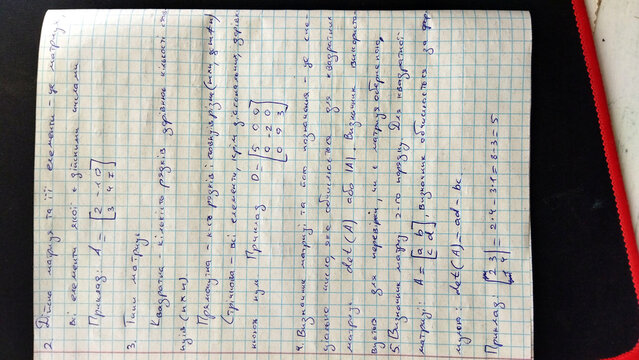 2. Дійсна матриця та її елементи - це матриця,
всі елементи якої є дійсними числами
Приклад: A = [2 -1 0
3 4 7]
3. Типи матриць
Квадратна - кількість рядків дорівнює кількості
(n×n)
Прямокутна - к-ть рядків і
всі елементи, крім діагональних,
нулю Приклад D = [5 0 0
0 -2 0
0 0 3]
4. Визначник матриці та його позначення - це
число, яке обчислюється для квадратних
матриць det(A) або |A|. Визначник
для перевірки, чи є матриця оберненою
5 Визначник матриці 2-го порядку Для квадратної
матриці: A = [a b
c d], визначник обчислюється за
мулою: det(A) = ad - bc
Приклад: [2 3
1 4] = 2·4 - 3·1 = 8 - 3 = 5